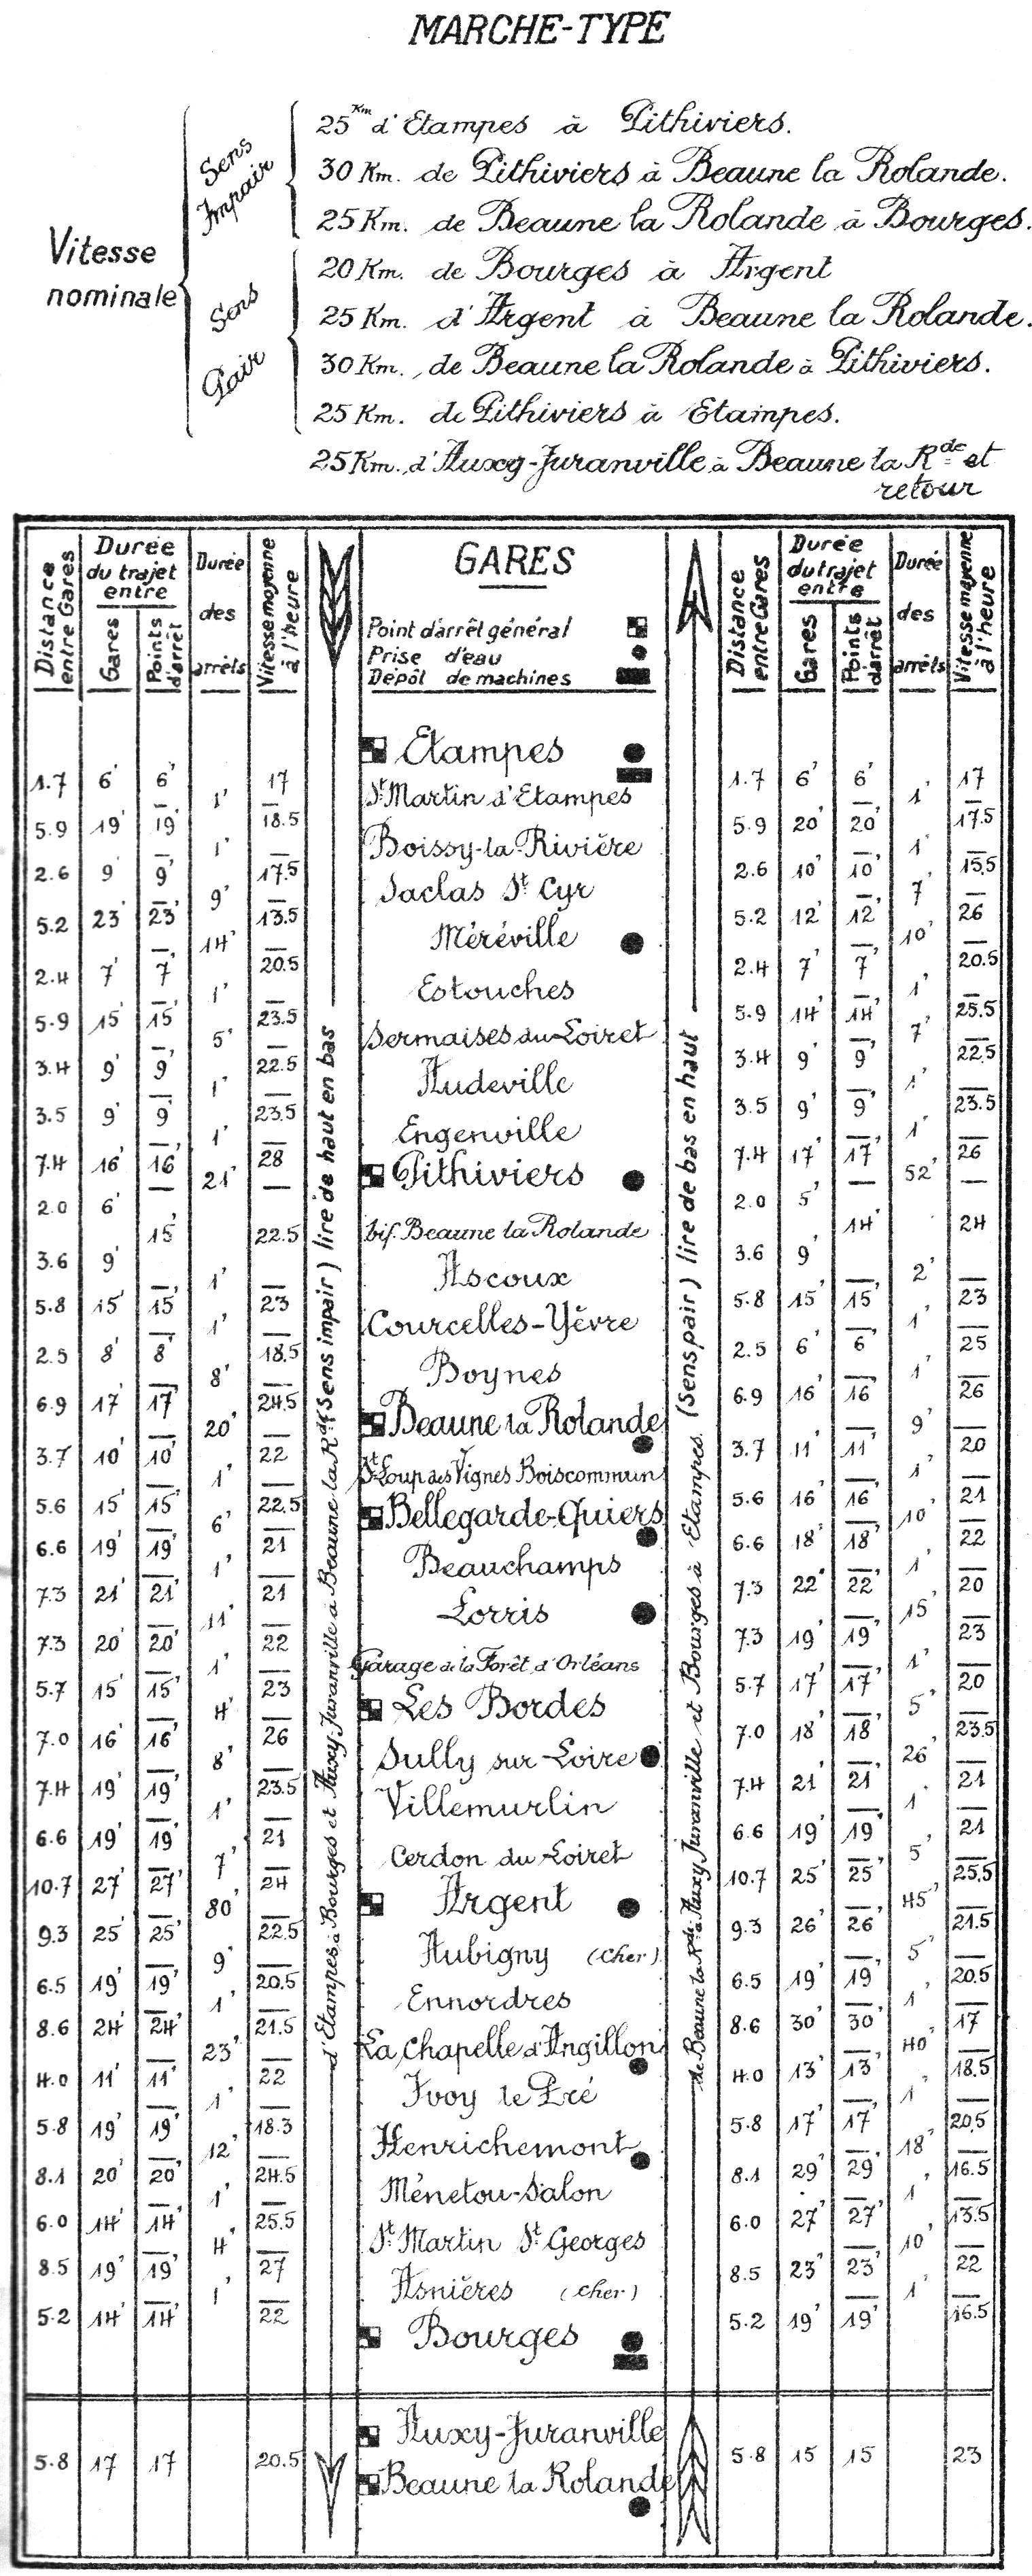 MARCHE-TYPE
Vitesse nominale
Sens Impair
25 Km d'Etampes à Pithiviers.
30 Km. de Pithiviers à Beaune la Rolande.
25 Km. de Beaune la Rolande à Bourges.
Sens Pair
20 Km. de Bourges à Argent
25 Km. d'Argent à Beaune la Rolande.
30 Km. de Beaune la Rolande à Pithiviers.
25 Km. de Pithiviers à Etampes.
25 Km. d'Auxy-Juranville à Beaune la Rde et
retour
Distance entre Gares
Durée du trajet entre
Gares
Points d'arrêt
Durée des arrêts
Vitesse moyenne à l'heure
GARES
Point d'arrêt général
Prise d'eau
Dépôt de machines
Distance entre Gares
Durée du trajet entre
Gares
Points d'arrêt
Durée des arrêts
Vitesse moyenne à l'heure
d'Etampes à Bourges et Auxy-Juranville à Beaune la Rde (Sens impair) lire de haut en bas
de Beaune la Rde à Auxy Juranville et Bourges à Etampes. (Sens pair) lire de bas en haut
Etampes
1.7 6' 6' 17 1.7 6' 6' 17
1' St Martin d'Etampes 1'
5.9 19' 19' 18.5 5.9 20' 20' 17.5
1' Boissy-la-Rivière 1'
2.6 9' 9' 17.5 2.6 10' 10' 15.5
9' Saclas St Cyr 7'
5.2 23' 23' 13.5 5.2 12' 12' 26
14' Méréville 10'
2.4 7' 7' 20.5 2.4 7' 7' 20.5
1' Estouches 1'
5.9 15' 15' 23.5 5.9 14' 14' 25.5
5' Sermaises du Loiret 7'
3.4 9' 9' 22.5 3.4 9' 9' 22.5
1' Audeville 1'
3.5 9' 9' 23.5 3.5 9' 9' 23.5
1' Engenville 1'
7.4 16' 16' 28 7.4 17' 17' 26
21' Pithiviers 52'
2.0 6' 2.0 5'
15' 22.5 bif. Beaune la Rolande 14' 24
3.6 9' 3.6 9'
1' Ascoux 2'
5.8 15' 15' 23 5.8 15' 15' 23
1' Courcelles-Yèvre 1'
2.5 8' 8' 18.5 2.5 6' 6' 25
8' Boynes 1'
6.9 17' 17' 24.5 6.9 16' 16' 26
20' Beaune la Rolande 9'
3.7 10' 10' 22 3.7 11' 11' 20
1' St Loup des Vignes Boiscommun 1'
5.6 15' 15' 22.5 5.6 16' 16' 21
6' Bellegarde-Quiers 10'
6.6 19' 19' 21 6.6 18' 18' 22
1' Beauchamps 1'
7.3 21' 21' 21 7.3 22' 22' 20
11' Lorris 15'
7.3 20' 20' 22 7.3 19' 19' 23
1' Garage de la Forêt d'Orléans 1'
5.7 15' 15' 23 5.7 17' 17' 20
4' Les Bordes 5'
7.0 16' 16' 26 7.0 18' 18' 23.5
8' Sully sur Loire 26'
7.4 19' 19' 23.5 7.4 21' 21' 21
1' Villemurlin 1'
6.6 19' 19' 21 6.6 19' 19' 21
7' Cerdon du Loiret 5'
10.7 27' 27' 24 10.7 25' 25' 25.5
80' Argent 45'
9.3 25' 25' 22.5 9.3 26' 26' 21.5
9' Aubigny (Cher) 5'
6.5 19' 19' 20.5 6.5 19' 19' 20.5
1' Ennordres 1'
8.6 24' 24' 21.5 8.6 30' 30' 17
23' La Chapelle d'Angillon 40'
4.0 11' 11' 22 4.0 13' 13' 18.5
1' Ivoy le Pré 1'
5.8 19' 19' 18.3 5.8 17' 17' 20.5
12' Henrichemont 18'
8.1 20' 20' 24.5 8.1 29' 29' 16.5
1' Ménetou-Salon 1'
6.0 14' 14' 25.5 6.0 27' 27' 13.5
4' St Martin St Georges 10'
8.5 19' 19' 27 8.5 23' 23' 22
1' Asnières (Cher) 1'
5.2 14' 14' 22 5.2 19' 19' 16.5
Bourges
Auxy-Juranville
5.8 17 17 20.5 5.8 15 15 23
Beaune la Rolande